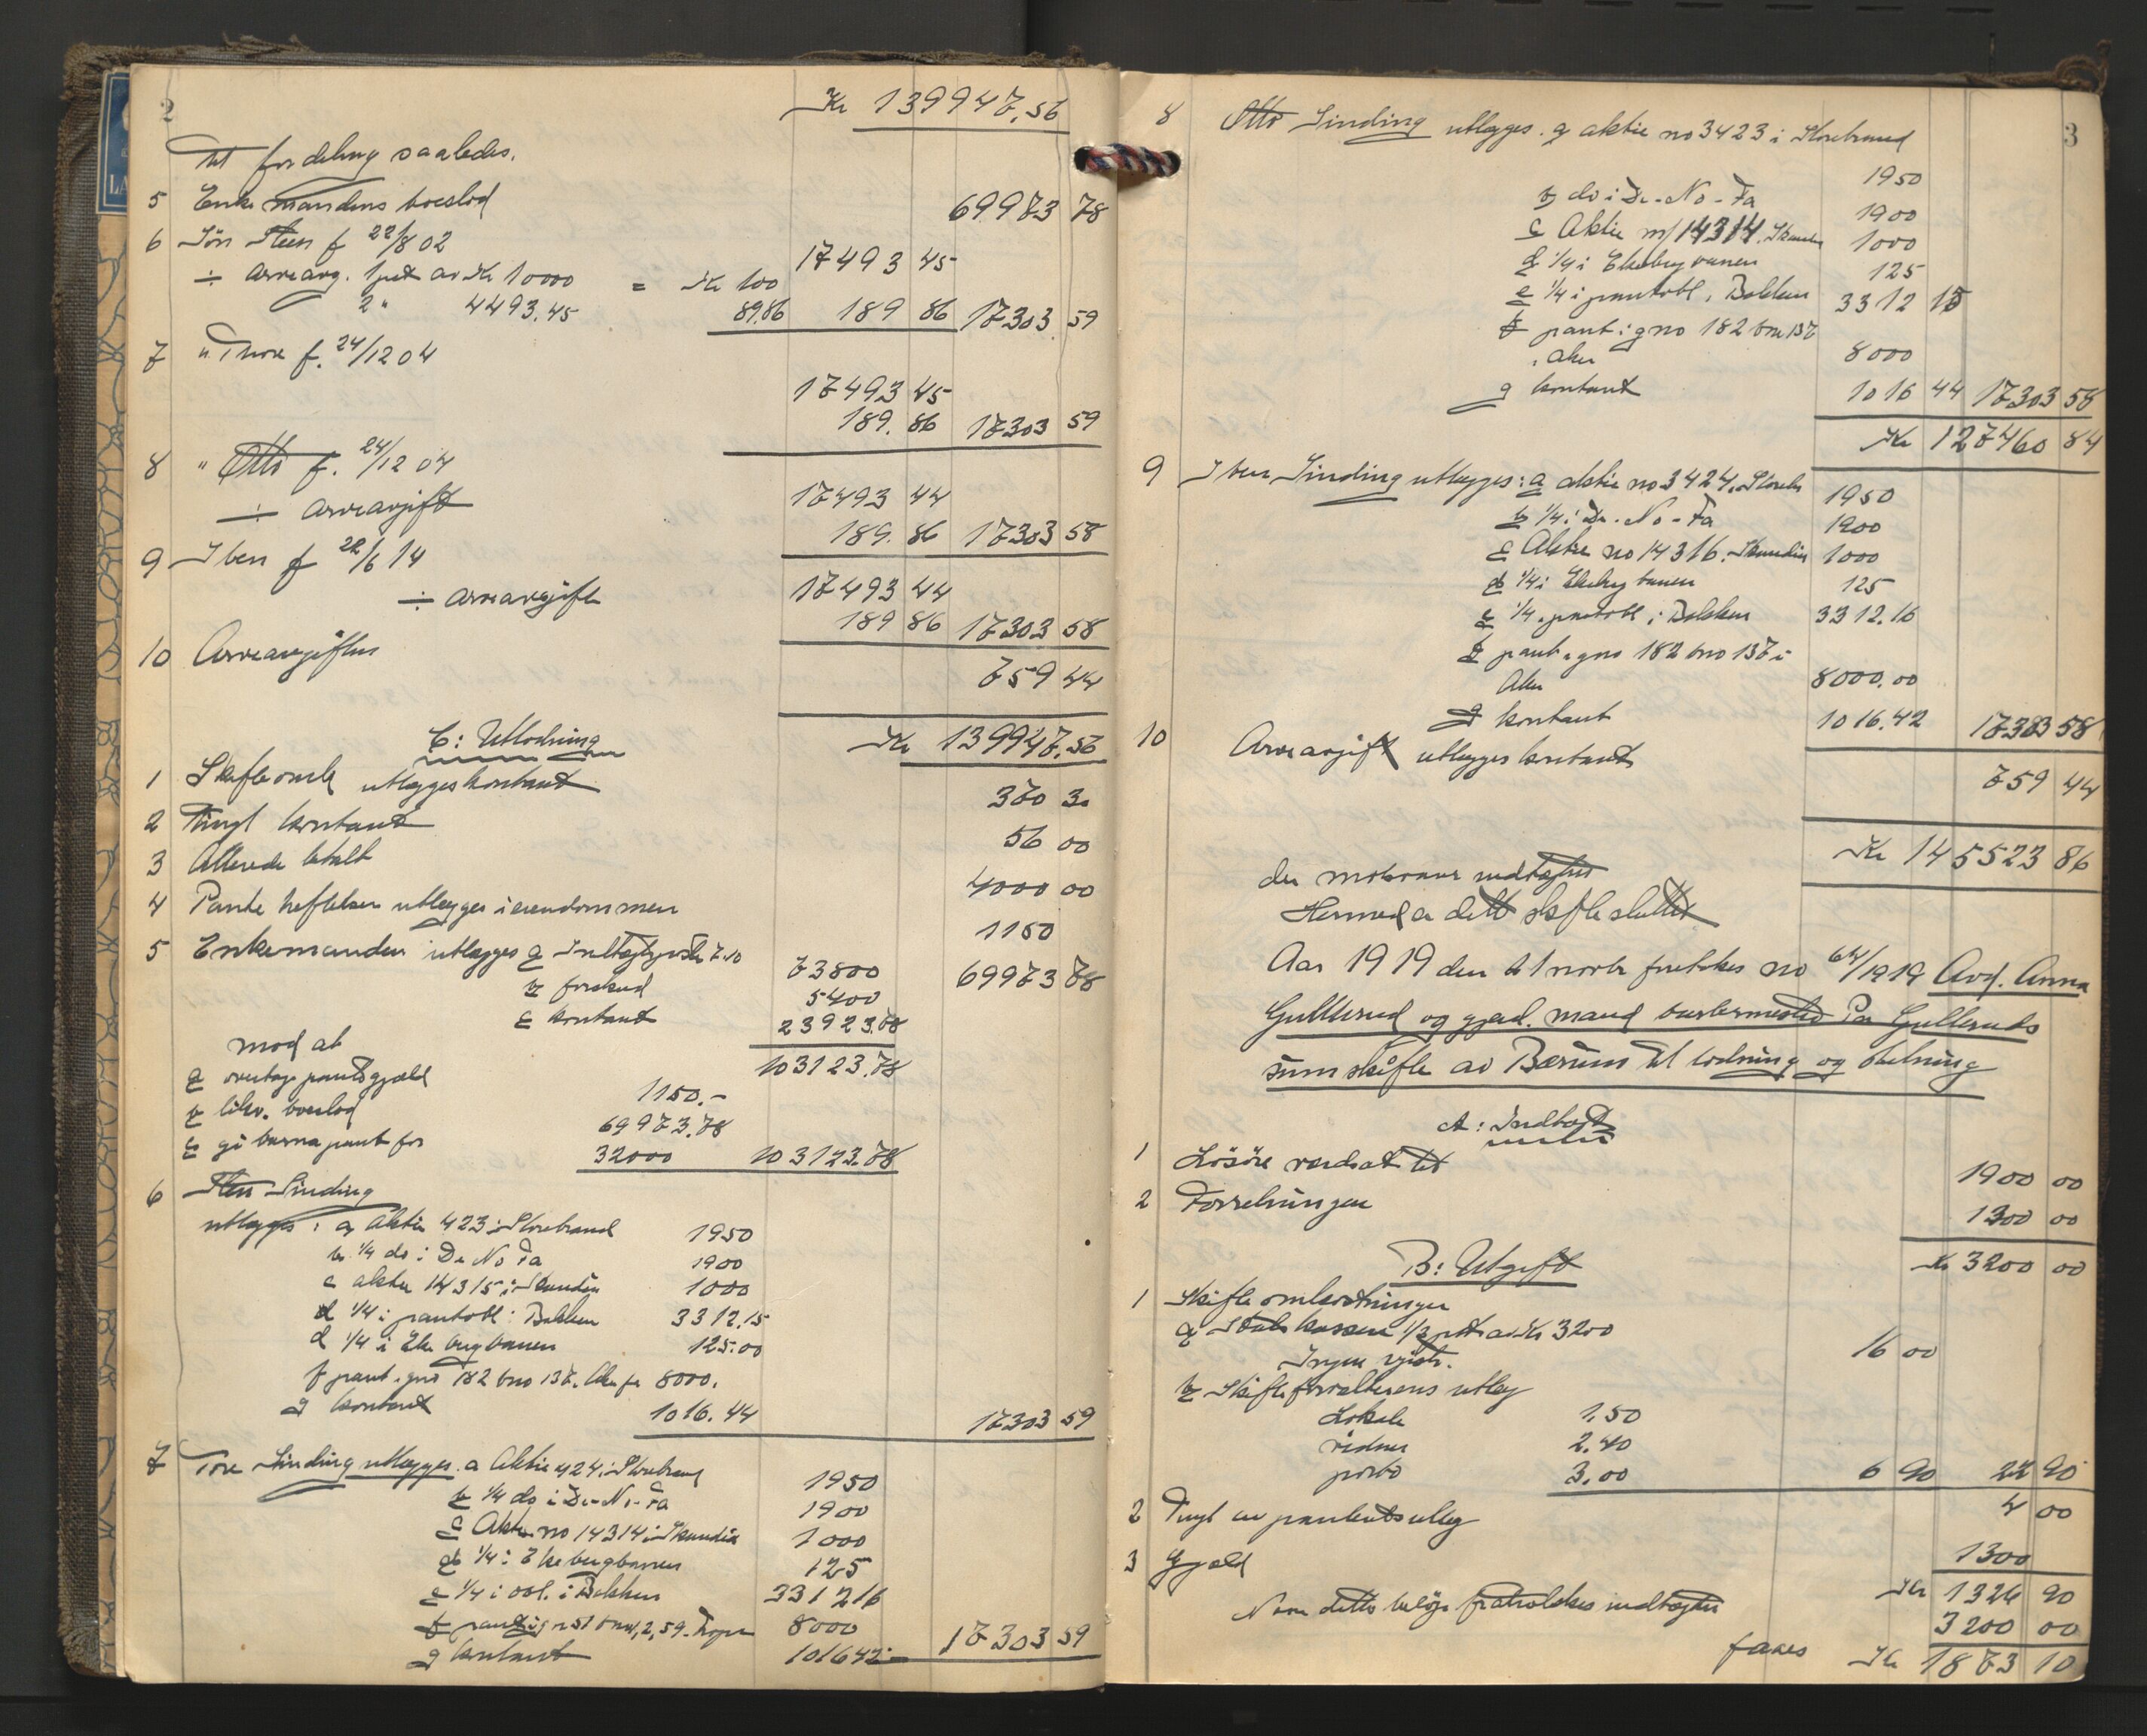 2
Kr 139947.56
til fordeling saaledes.
5 Enkemandens boeslod 69973 78
6 Jön Steen f 22/8 02 17493 45
÷ arveavg. 1 pct av Kr 10000 = Kr 100
2 " 4493.45 89.86 189 86 17303 59
7 " Thore f. 24/12 04
17493 45
189. 86 17303 59
8 " Otto f. 24/12 04 17493 44
÷ arveavgift 189. 86 17303 58
9 Iben f 22/6 14 17493 44
÷ arveavgift 189 86 17303 58
10 Arveavgiften 759 44
Kr 139947.56
C: Utlodning
1 Skifteomk utlægges kontant 370 30
2 Tingl kontant 56 00
3 Allerede betalt 4000 00
4 Pante heftelsen utlægges i eiendommen 1150
5 Enkemanden utlægges a Indtægtspost 7-10 73800 69973 78
b forskud 5400
c kontant 23923.78
mod at 103123.78
a overtage pantegjæld 1150.-
b tilsv. boeslod 69973.78
c gi barna pant for 32000 103123.78
6 Sten Sinding
utlægges: a Aktie 423 i Storebrand 1950
b 1/4 do i De No Fa 1900
c aktie 14315 i Skandia 1000
d 1/4 i pantobl i Bakken 3312.15
d 1/4 i Ekebergbanen 125.00
f pant i gno 182 bno 137. Aker for 8000.
g kontant 1016.44 17303 59
7 Tore Sinding utlægges. a Aktie 424 i Storebrand 1950
b 1/4 do i De-No-Fa 1900
c Aktie no 14314 i Skandia 1000
d 1/4 i Ekebergbanen 125
e 1/4 i obl. i Bakken 3312 16
f pant i gno 51 bno 1, 2, 59. 8000
g kontant 1016 42 17303 59
3
8 Otto Sinding utlægges. a aktie no 3423 i Storebrand
1950
b do i De-No-Fa 1900
c Aktie no 14314. Skandia 1000
d 1/4 i Ekebergbanen 125
e 1/4 i pantobl, Bakken 3312 15
f pant i gno 182 bno 137
i Aker 8000
g kontant 1016 44 17303 58
Kr 127460 84
9 Iben Sinding utlægges: a aktie no 3424. Storebr 1950
b 1/4 i De-No-Fa 1900
c Aktie no 14316. Skandia 1000
d 1/4 i Ekebergbanen 125
e 1/4 i pantobl i Bakken 3312.16
f pant i gno 182 bno 137 i
Aker 8000.00
g kontant 1016.42 17303 58
10 Arveavgift utlægges kontant
759 44
Kr 145523 86
der motsvarer indtægten
Hermed er dette skifte sluttet
Aar 1919 den 21 novbr foretokes no 64/1919 Avd. Anna
Gullerud og gjenl. mand Per Gulleruds
sumskifte av Bærum til lodning og slutning
A: Indtægt
1 Lösöre værdsat til 1900 00
2 Forretningen 1300 00
Kr 3200 00
B: Utgift
1 Skifte omkostninger
a Statskassen 1/2 pct av Kr 3200 16 00
Ingen registr.
b Skifteforvalterens utlæg
Lokale 1.50
vidner 2.40
porto 3.00 6 90 22 90
2 Tingl av panteutlæg 4 00
3 Gjæld 1300
Kr 1326 90
Naar dette belöp fratrækkes indtægten 3200 00
faaes Kr 1873 10